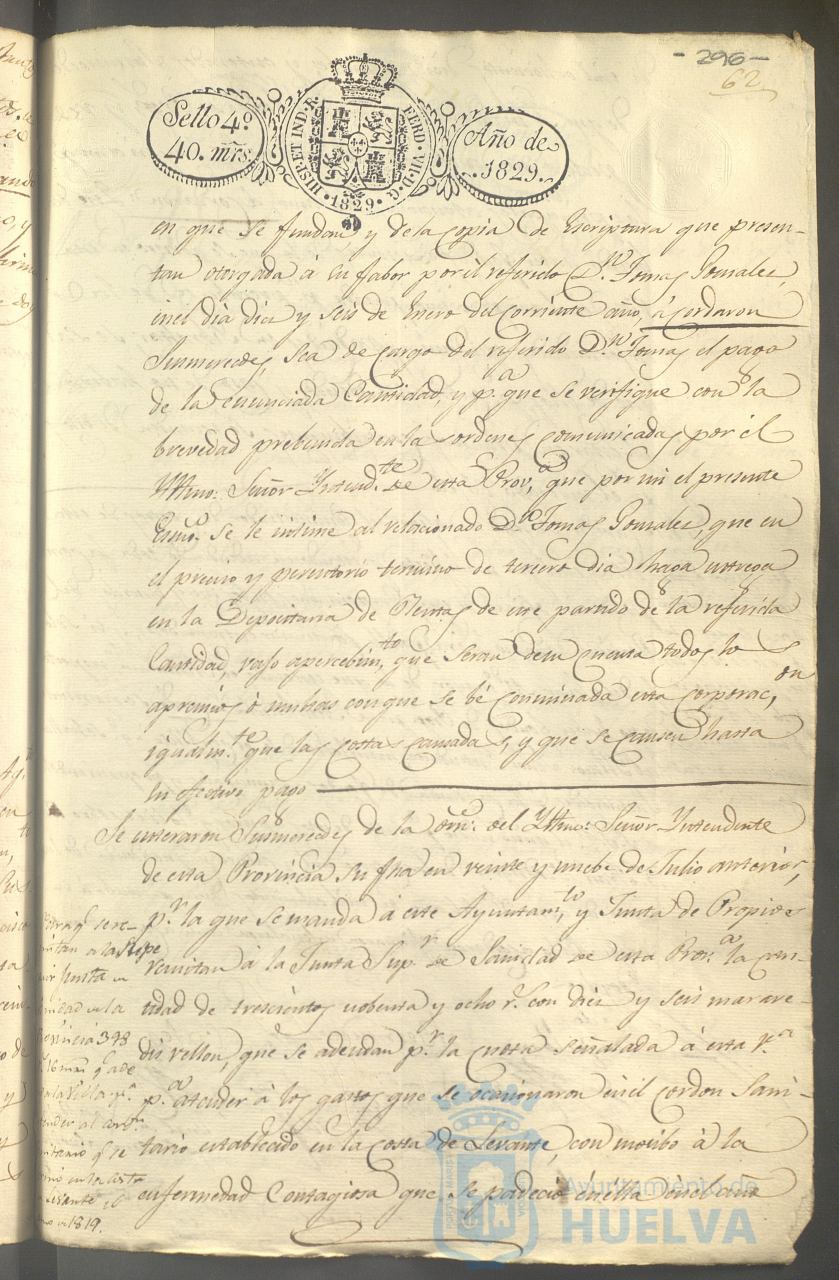 - 296 -
62
Sello 4º
40. mrs.
HISP. ET IND. R.
FERD. VII. D. G.
· 1829 ·
Año de
1829.
en que se fundan y de la Copia de Escriptura que presen-
tan otorgada á su fabor por el referido Dn. Tomas Gonzalez,
en el dia diez y seis de Enero del corriente año, acordaron
Susmercedes sea de cargo del referido Dn. Tomas el pago
de la enunciada Cantidad, y pa. que se verifique con la
brevedad prebenida en las ordenes comunicadas por el
Yltmo. Señor Yntendte. de esta Prova. que por mi el presente
Esno. se le intime al relacionado Dn. Tomas Gonzalez, que en
el preciso y perentorio termino de tercero dia haga entrega
en la Depositaria de Rentas de este partido de la referida
Cantidad, vajo apercebimto. que seran de su cuenta todos los
apremios ó multas con que se bé conminada esta corporacon.
igualmte. que las costas causadas, y que se causen hasta
su efectivo pago
Se enteraron Susmercedes de la orn. del Yltmo. Señor Yntendente
de esta Provincia su fha en veinte y nuebe de Julio anterior,
pr. la que se manda á este Ayuntamto. y Junta de Propios
remitan á la Junta Supr. de Sanidad de esta Prova. la can-
tidad de trescientos nobenta y ocho rs. con diez y seis marave-
dis vellon, que se adeudan pr. la cuota señalada á esta Va.
pa. atender á los gastos que se ocasionaron en el cordon Sani-
tario establecido en la Costa de Levante, con motibo á la
enfermedad Contagiosa que se padeció en ella en el año
qe. se re-
mitan a la Supe
Junta de
Sanidad de la
Provincia 398
16 mrs. qe. ade
la Villa pa.
atender al
Sanitario qe. se
en la Costa
Levante el
año de 1819.
Ayuntamiento de
HUELVA